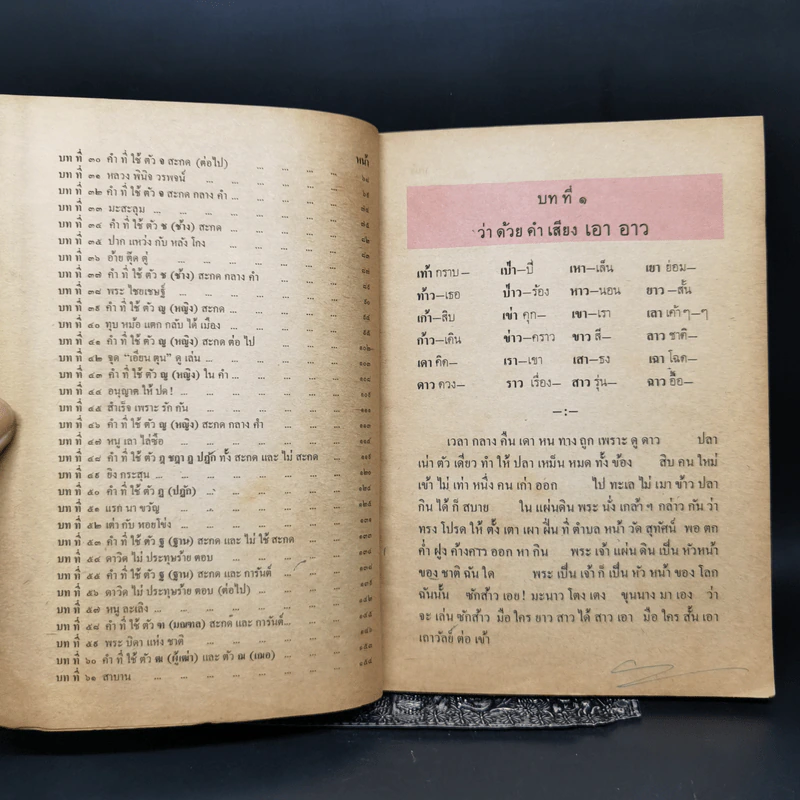 หน้า
บท ที่ ๓๐ คำ ที่ ใช้ ตัว จ สะกด (ต่อไป) ... ... ...
บท ที่ ๓๑ หลวง พินิจ วรพจน์ ... ... ...
บท ที่ ๓๒ คำ ที่ ใช้ ตัว จ สะกด กลาง คำ ... ... ...
บท ที่ ๓๓ มะสะลุม ... ... ... ...
บท ที่ ๓๔ คำ ที่ ใช้ ตัว ช (ช้าง) สะกด ... ... ...
บท ที่ ๓๕ ปาก แหว่ง กับ หลัง โกง ... ... ...
บท ที่ ๓๖ อ้าย ตุ้ด ตู่ ... ... ... ...
บท ที่ ๓๗ คำ ที่ ใช้ ตัว ช (ช้าง) สะกด กลาง คำ ... ...
บท ที่ ๓๘ พระ ไชยเชษฐ์ ... ... ...
บท ที่ ๓๙ คำ ที่ ใช้ ตัว ญ (หญิง) สะกด ... ... ...
บท ที่ ๔๐ ทุบ หม้อ แตก กลับ ได้ เมือง ... ... ...
บท ที่ ๔๑ คำ ที่ ใช้ ตัว ญ (หญิง) สะกด ต่อ ไป ... ...
บท ที่ ๔๒ ชูด “เอียน ตุน” ดู เล่น ... ... ...
บท ที่ ๔๓ คำ ที่ ใช้ ตัว ญ (หญิง) ใน คำ ... ... ...
บท ที่ ๔๔ อนุญาต ให้ ปด! ... ... ...
บท ที่ ๔๕ สำเร็จ เพราะ รัก กัน ... ... ...
บท ที่ ๔๖ คำ ที่ ใช้ ตัว ญ (หญิง) สะกด กลาง คำ ... ...
บท ที่ ๔๗ หนู เลา ไล่ชื้อ ... ... ...
บท ที่ ๔๘ คำ ที่ ใช้ ตัว ฎ ชฎา ฏ ปฏัก ทั้ง สะกด และ ไม่ สะกด ...
บท ที่ ๔๙ ยิง กระสุน ... ... ... ...
บท ที่ ๕๐ คำ ที่ ใช้ ตัว ฏ (ปฏัก) ... ... ...
บท ที่ ๕๑ แรก นา ขวัญ ... ... ...
บท ที่ ๕๒ เต่า กับ หอยโข่ง ... ... ...
บท ที่ ๕๓ คำ ที่ ใช้ ตัว ฐ (ฐาน) สะกด และ ไม่ ใช้ สะกด ...
บท ที่ ๕๔ ดาวิด ไม่ ประทุษร้าย ตอบ ... ... ...
บท ที่ ๕๕ คำ ที่ ใช้ ตัว ฐ (ฐาน) สะกด และ การันต์ ... ...
บท ที่ ๕๖ ดาวิด ไม่ ประทุษร้าย ตอบ (ต่อไป) ... ...
บท ที่ ๕๗ หนู ละเลิง ... ... ...
บท ที่ ๕๘ คำ ที่ ใช้ ตัว ฑ (มณฑล) สะกด และ การันต์... ...
บท ที่ ๕๙ พระ บิดา แห่ง ชาติ ... ... ...
บท ที่ ๖๐ คำ ที่ ใช้ ตัว ฒ (ผู้เฒ่า) และ ตัว ฌ (เฌอ) ... ...
บท ที่ ๖๑ สาบาน ... ... ... ...
บท ที่ ๑
ว่า ด้วย คำ เสียง เอา อาว
เท้า กราบ – เป่า–ปี่ เหา–เล็น เยา ย่อม–
ท้าว–เธอ ป่าว–ร้อง หาว–นอน ยาว –สั้น
เก้า–สิบ เข่า คุก– เขา–เรา เลา เค้าๆ–ๆ
ก้าว–เดิน ข่าว–คราว ขาว สี– ลาว ชาติ–
เดา คิด– เรา–เขา เสา–ธง เฉา โฉด–
ดาว ดวง– ราว เรื่อง– สาว รุ่น– ฉาว อื้อ–
–:–
เวลา กลาง คืน เดา หน ทาง ถูก เพราะ ดู ดาว ปลา
เน่า ตัว เดียว ทำ ให้ ปลา เหม็น หมด ทั้ง ข้อง สิบ คน ใหม่
เข้า ไม่ เท่า หนึ่ง คน เก่า ออก ไป ทะเล ไม่ เมา ข้าว ปลา
กิน ได้ ก็ สบาย ใน แผ่นดิน พระ นั่ง เกล้า ฯ กล่าว กัน ว่า
ทรง โปรด ให้ ตั้ง เตา เผา ฝิ่น ที่ ตำบล หน้า วัด สุทัศน์ พอ ตก
ค่ำ ฝูง ค้างคาว ออก หา กิน พระ เจ้า แผ่น ดิน เป็น หัวหน้า
ของ ชาติ ฉัน ใด พระ เป็น เจ้า ก็ เป็น หัว หน้า ของ โลก
ฉันนั้น ซักส้าว เอย! มะนาว โตง เตง ขุนนาง มา เอง ว่า
จะ เล่น ซักส้าว มือ ใคร ยาว สาว ได้ สาว เอา มือ ใคร สั้น เอา
เถาวัลย์ ต่อ เข้า